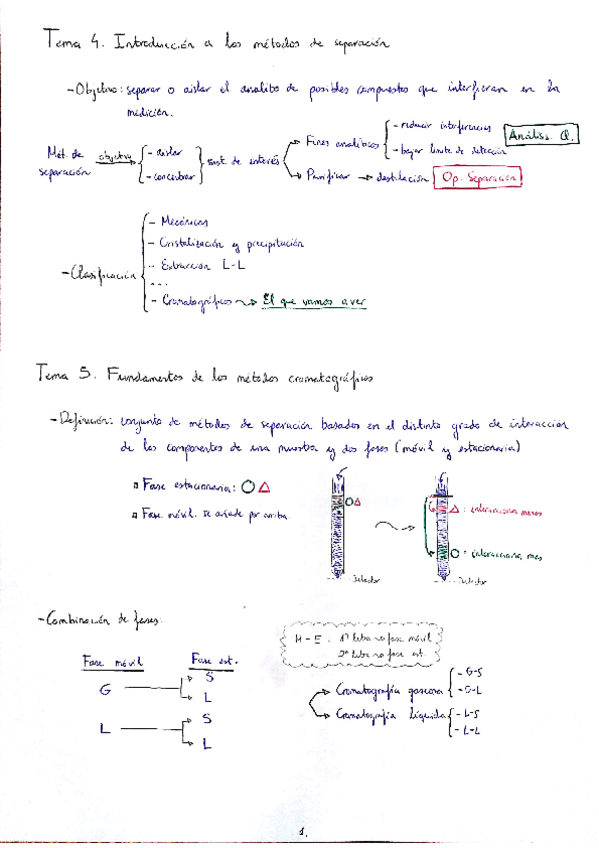 Tema 4. Introducción a los métodos de separación
- Objetivo: separar o aislar el analito de posibles compuestos que interfieran en la
medición.
Mét. de separación objetivo - aislar - concentrar sust. de interés
Fines analíticos - reducir interferencias - bajar límite de detección Análisis Q.
Purificar → destilación Op. Separación
- Clasificación
- Mecánicos
- Cristalización y precipitación
- Extracción L-L
- ...
- Cromatográficos El que vamos a ver
Tema 5. Fundamentos de los métodos cromatográficos
- Definición: conjunto de métodos de separación basados en el distinto grado de interacción
de los componentes de una muestra y dos fases (móvil y estacionaria)
Fase estacionaria:
Fase móvil. Se añade por arriba.
: interacciona menos
: interacciona más
Detector
Detector
- Combinación de fases:
M-E. 1ª letra → fase móvil
2ª letra → fase est.
Fase móvil Fase est.
G S
L
L S
L
Cromatografía gaseosa - G-S
- G-L
Cromatografía líquida - L-S
- L-L
1.